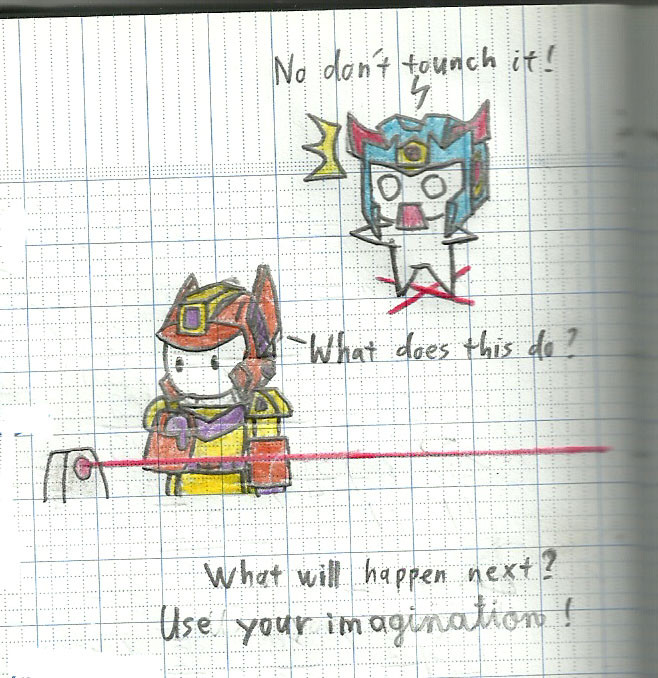 No don't tounch it!
What does this do?
What will happen next?
Use your imagination!